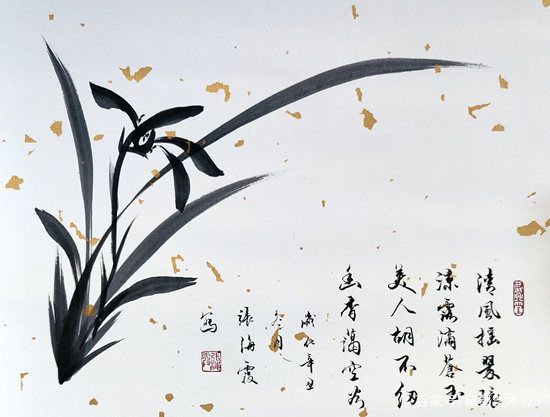 清風摇翠環
涼露滴蒼玉
美人胡不紉
幽香藹空谷
歲在辛丑
冬月
張海霞
寫